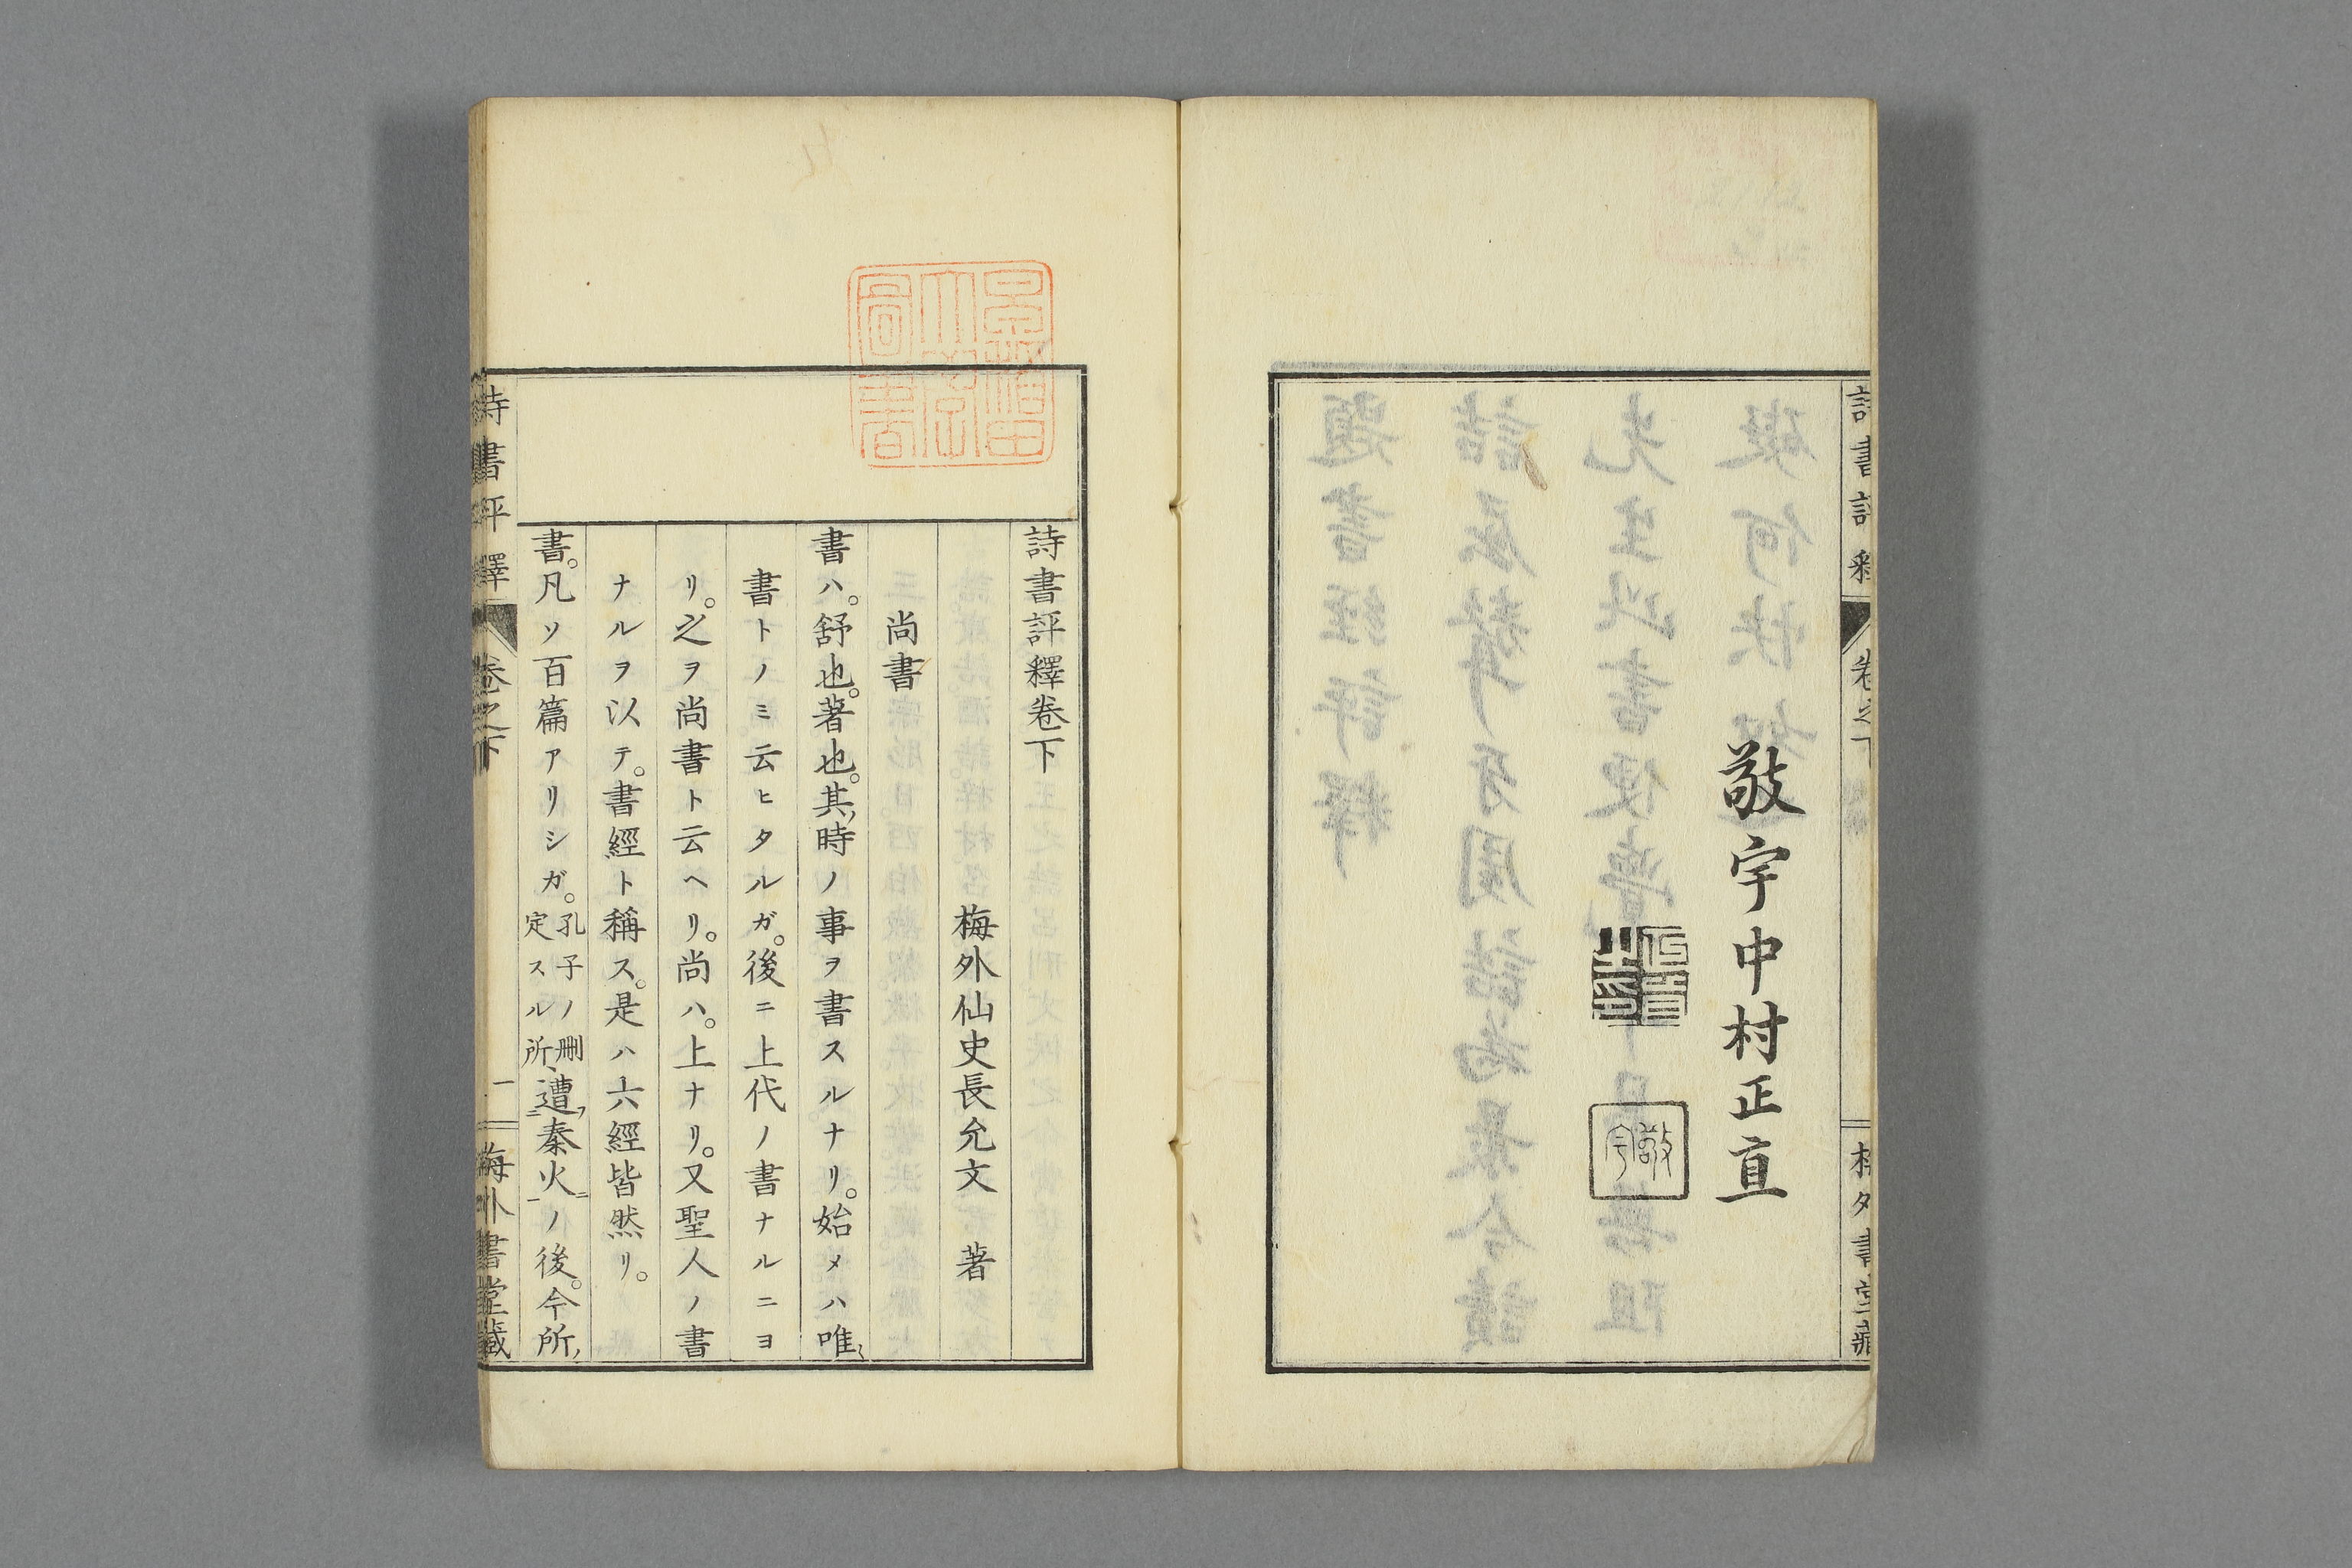 敬宇中村正直
敬宇
詩書評釋卷下
梅外仙史長允文　著
尚書
書ハ。舒也。著也。其ノ時ノ事ヲ書スルナリ。始メハ唯〻
書トノミ云ヒタルガ。後ニ上代ノ書ナルニヨ
リ。之ヲ尚書ト云ヘリ。尚ハ。上ナリ。又聖人ノ書
ナルヲ以テ。書經ト稱ス。是ハ六經皆然リ。
書。凡ソ百篇アリシガ。孔子ノ删定スル所、遭フ二秦火ニ一ノ後。今所ノ
詩書評釋　卷之下　一　梅外書堂藏